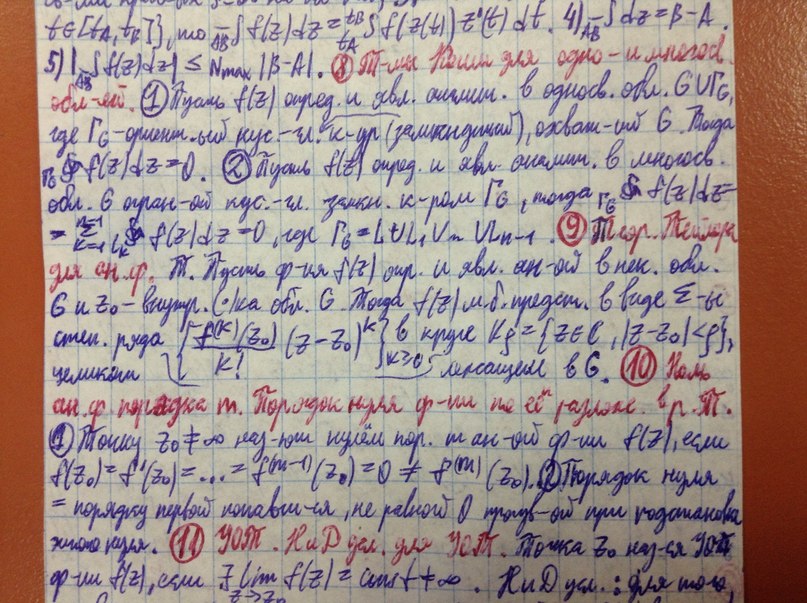 t∈[tA, tB]}, то AB∫ f(z)dz = tA∫tB f(z(t)) z'(t) dt. 4) AB∫ dz = B-A.
5) |AB∫ f(z)dz| ≤ Nmax |B-A|. ⑧ Т-мы Коши для одно- и многосв.
обл-ей. ① Пусть f(z) опред. и явл. аналит. в односв. обл. G∪ΓG,
где ΓG-ориент-ый кус.-гл. к-ур (замкнутый), охват-ий G. Тогда
ΓG∮ f(z)dz=0. ② Пусть f(z) опред. и явл. аналит. в многосв.
обл. G огран-ой кус.-гл. замкн. к-ром ΓG, тогда ΓG∮ f(z)dz=
= Σ k=1 n-1 Lk∮ f(z)dz=0, где ΓG=L∪L1∪...∪Ln-1. ⑨ Теор. Тейлора
для ан. ф. Т. Пусть ф-ия f(z) опр. и явл. ан-ой в нек. обл.
G и z0 - внутр. т/ка обл. G. Тогда f(z) м.б. предст. в виде Σ-ы
степ. ряда {f(k)(z0)/k! (z-z0)^k}k≥0 в круге Kρ={z∈ℂ, |z-z0|<ρ},
целиком лежащем в G. ⑩ Ноль
ан. ф. порядка m. Порядок нуля ф-ии по её разлож. в р. Т.
① Точку z0≠∞ наз-ют нулём пор. m ан-ой ф-ии f(z), если
f(z0)=f'(z0)=...=f(m-1)(z0)=0≠f(m)(z0). ② Порядок нуля
= порядку первой попавш-ся, не равной 0 произв-ой при подстановке
этого нуля. ⑪ УОТ. НиД усл. для УОТ. Точка z0 наз-ся УОТ
ф-ии f(z), если ∃ lim z→z0 f(z) = const ≠ ∞. НиД усл.: для того,